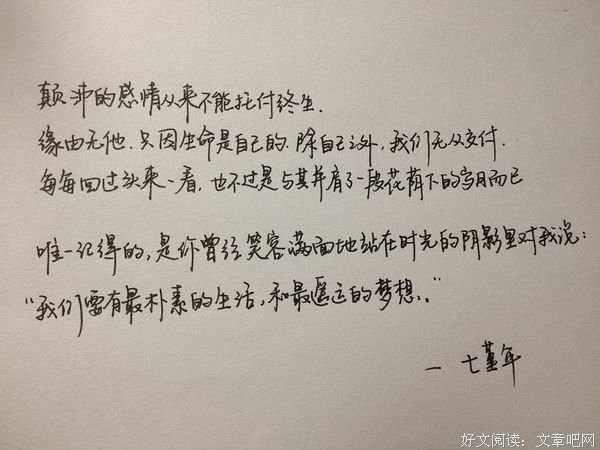 颠沛的感情从来不能托付终生.
缘由无他.只因生命是自己的.除自己之外,我们无从交付.
每每回过头来一看,也不过是与其并肩了一段花荫下的岁月而已
唯一记得的,是你曾经笑容满面地站在时光的阴影里对我说:
“我们要有最朴素的生活,和最遥远的梦想..”
— 七堇年
好文阅读:文章吧网